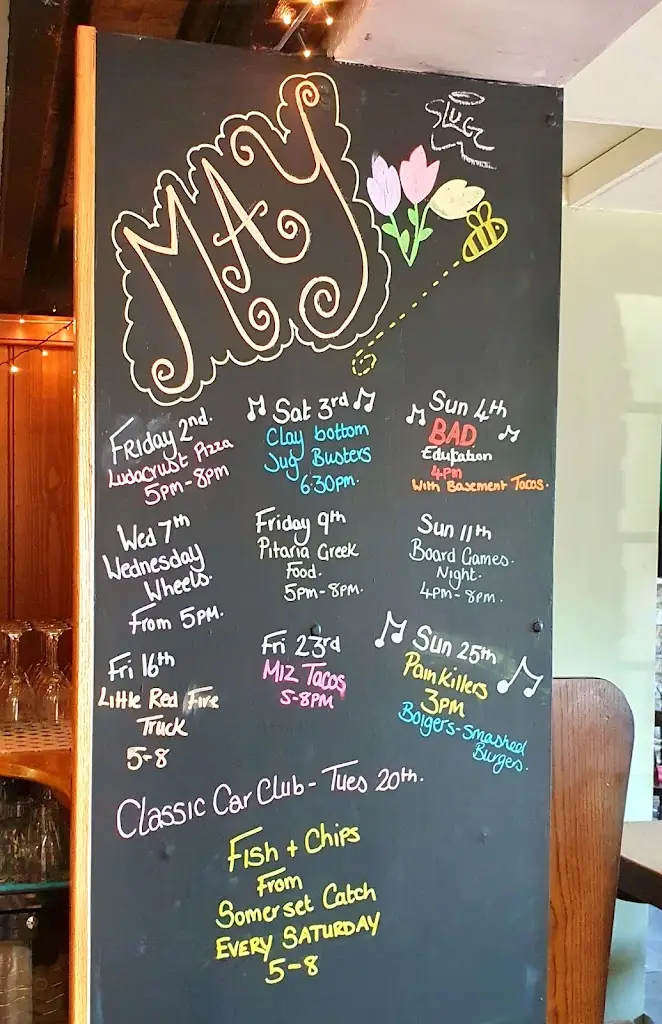 MAY
SLUGZ
Friday 2nd.
Ludacrust Pizza
5pm-8pm
Sat 3rd
Clay bottom
Jug Busters
6.30pm.
Sun 4th
BAD
Edukation
4pm
With Basement Tacos.
Wed 7th
Wednesday
Wheels.
From 5PM.
Friday 9th
Pitaria Greek
Food.
5pm-8pm.
Sun 11th
Board Games.
Night.
4PM-8PM.
Fri 16th
Little Red Fire
Truck
5-8
Fri 23rd
MIZ Tacos
5-8PM
Sun 25th
Pain Killers
3PM
Boigers-Smashed
Burgers.
Classic Car Club - Tues 20th.
Fish + Chips
From
Somerset Catch
EVERY SATURDAY
5-8